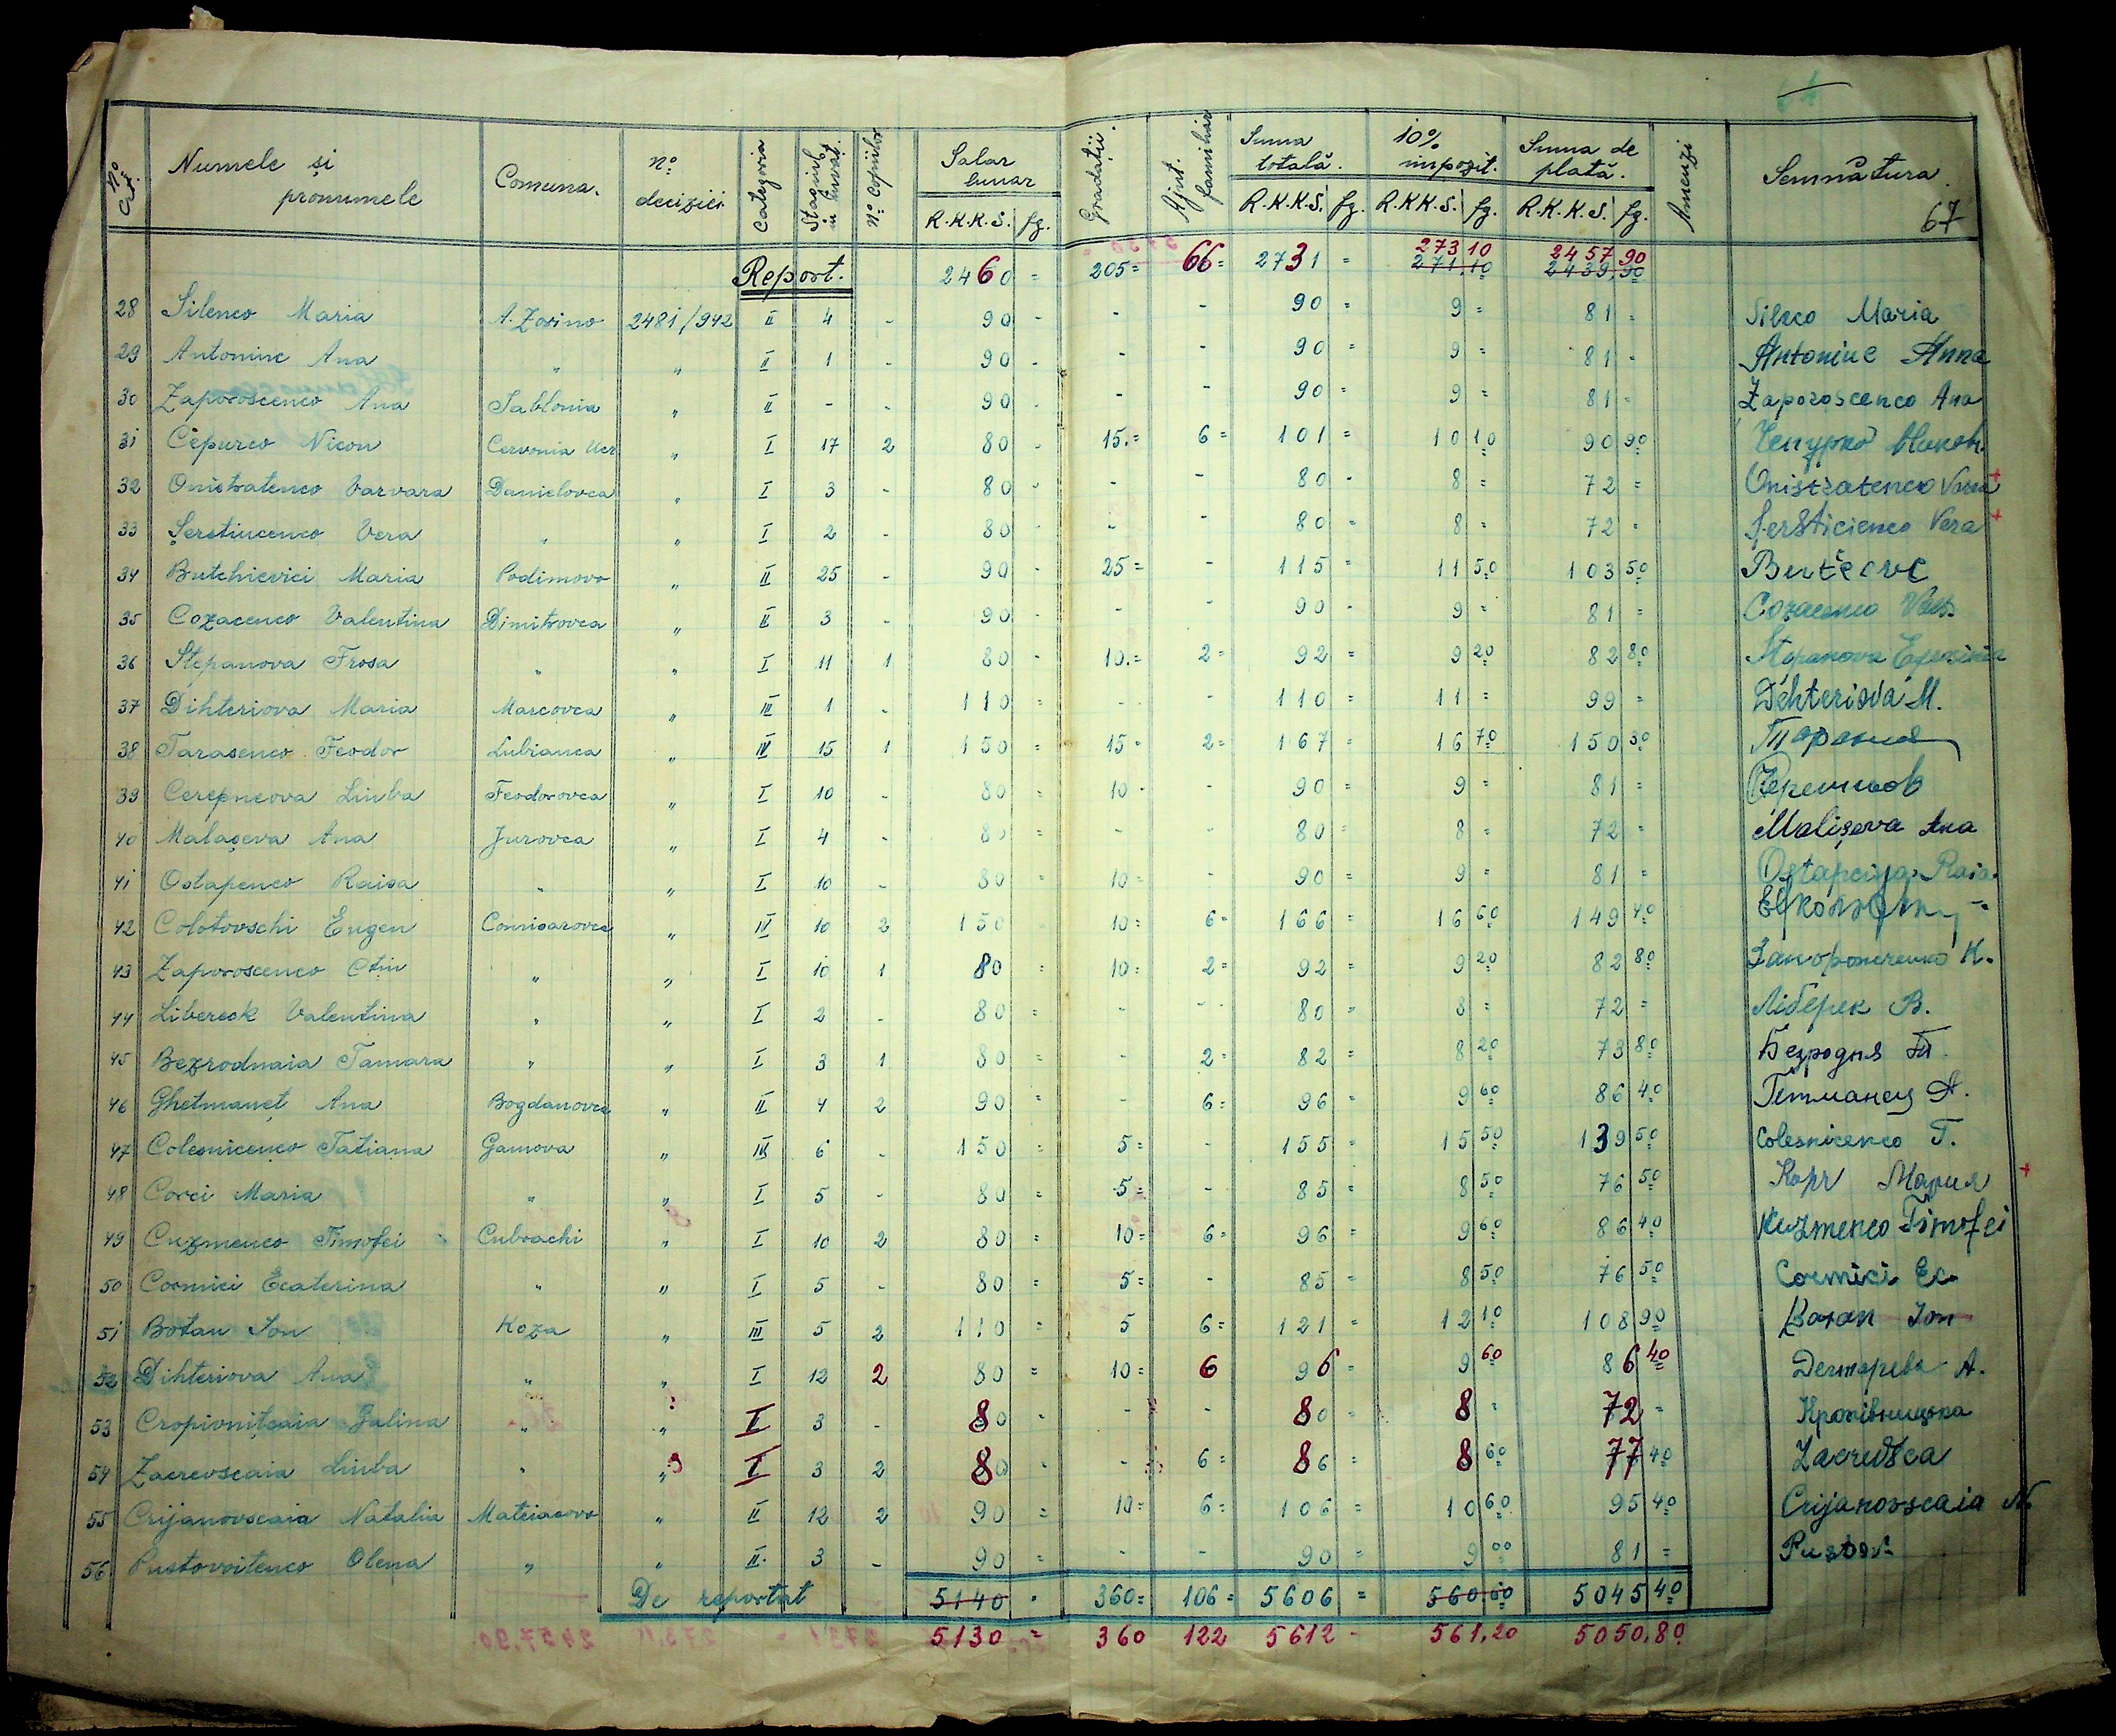 No Crt. Numele și pronumele Comuna. No decizii Categoria Stagiul în învăț. No copiilor Salar lunar R.K.K.S. fg. Gradații. Ajut. familiar Suma totală. R.K.K.S. fg. 10% impozit. R.K.K.S. fg. Suma de plată. R.K.K.S. fg. Amenzi Semnătura. 67
Report. 2460 = 205= 66= 2731 = 273 10 2457 90
271 10 2439,90
28 Silenco Maria A. Zorino 2481/942 II 4 - 90 - - - 90 = 9 = 81 = Silico Maria
29 Antoninc Ana " " II 1 - 90 - - - 90 = 9 = 81 - Antoniuc Anna
30 Zaporoscenco Ana Sablonia " II - - 90 - - - 90 = 9 = 81 - Zaporoscenco Ana
31 Cepurco Nicon Cervonia Ucr " I 17 2 80 - 15.= 6= 101 = 10 10 90 90 Чепурко Никон.
32 Onistratenco Varvara Danielovca " I 3 - 80 - - - 80 - 8 = 72 = Onistratenco Varva +
33 Șerstiucenco Vera " " I 2 - 80 - - - 80 = 8 = 72 - Șersticienco Vera +
34 Butchievici Maria Podimovo " II 25 - 90 - 25= - 115 = 11 50 103 50
35 Cozacenco Valentina Dimitrovca " II 3 - 90 - - - 90 - 9 = 81 = Cozacenco Val.
36 Stepanova Frosa " " I 11 1 80 - 10.= 2= 92 = 9 20 82 80 Stepanova
37 Dihteriova Maria Marcovca " III 1 - 110 = - - 110 = 11 = 99 = Dehteriova M.
38 Tarasenco Feodor Lubianca " IV 15 1 150 = 15= 2= 167 = 16 70 150 30
39 Cerepneova Liuba Feodorovca " I 10 - 80 = 10 - - 90 = 9 = 81 =
40 Malașeva Ana Jurovca " I 4 - 80 = - - 80 = 8 = 72 - Malișeva Ana
41 Ostapenco Raisa " " I 10 - 80 = 10= - 90 = 9 = 81 = Raia.
42 Colotovschi Eugen Comisarovca " IV 10 2 150 10= 6= 166 = 16 60 149 40
43 Zaporoscenco Ctin " " I 10 1 80 = 10= 2= 92 = 9 20 82 80 К.
44 Liberesk Valentina " " I 2 - 80 = - - 80 = 8 = 72 = Ліберек В.
45 Bezrodnaia Tamara " " I 3 1 80 = - 2= 82 = 8 20 73 80 Безродня Т.
46 Ghetmaneț Ana Bogdanovca " II 4 2 90 = - 6= 96 = 9 60 86 40 Гетманец А.
47 Colesnicenco Tatiana Gamova " IV 6 - 150 = 5= - 155 = 15 50 139 50 Colesnicenco T.
48 Corci Maria " " I 5 - 80 = 5= - 85 = 8 50 76 50 Мария +
49 Cuzmenco Timofei Cubrachi " I 10 2 80 = 10= 6= 96 = 9 60 86 40 Kuzmenco Timofei
50 Cormici Ecaterina " " I 5 - 80 = 5= - 85 = 8 50 76 50 Cormici Ec.
51 Botan Ion Koza " III 5 2 110 = 5 6= 121 = 12 10 108 90 Ion
52 Dihteriova Ana " " I 12 2 80 = 10= 6 96 = 9 60 86 40 А.
53 Cropivnițcaia Galina " " I 3 - 80 - - - 80 = 8 = 72 = Кропівницька
54 Zacrevscaia Liuba " " I 3 2 80 - - 6= 86 = 8 60 77 40 Zacrevsca
55 Crijanovscaia Natalia Mateiasovo " II 12 2 90 = 10= 6= 106 = 10 60 95 40 Crijanovscaia N.
56 Pustovoitenco Olena " " II 3 - 90 = - - 90 = 9 00 81 = Pustov
De reportat 5140 - 360= 106= 5606 = 560.60 5045 40
5130 = 360 122 5612 - 561,20 5050,80